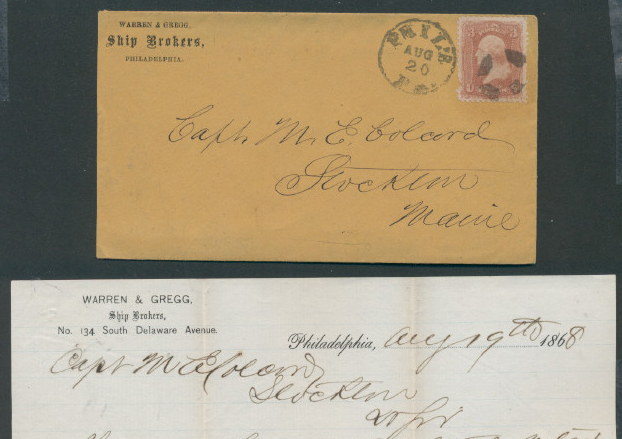 WARREN & GREGG,
Ship Brokers,
PHILADELPHIA.
PHIL'A
AUG
20
Pa.
3 3
Capt. M. E. Colcord
Stockton
Maine
WARREN & GREGG,
Ship Brokers,
No. 134 South Delaware Avenue.
Philadelphia, Aug 19th 1868
Capt M E Colcord
Stockton
Dr Sir